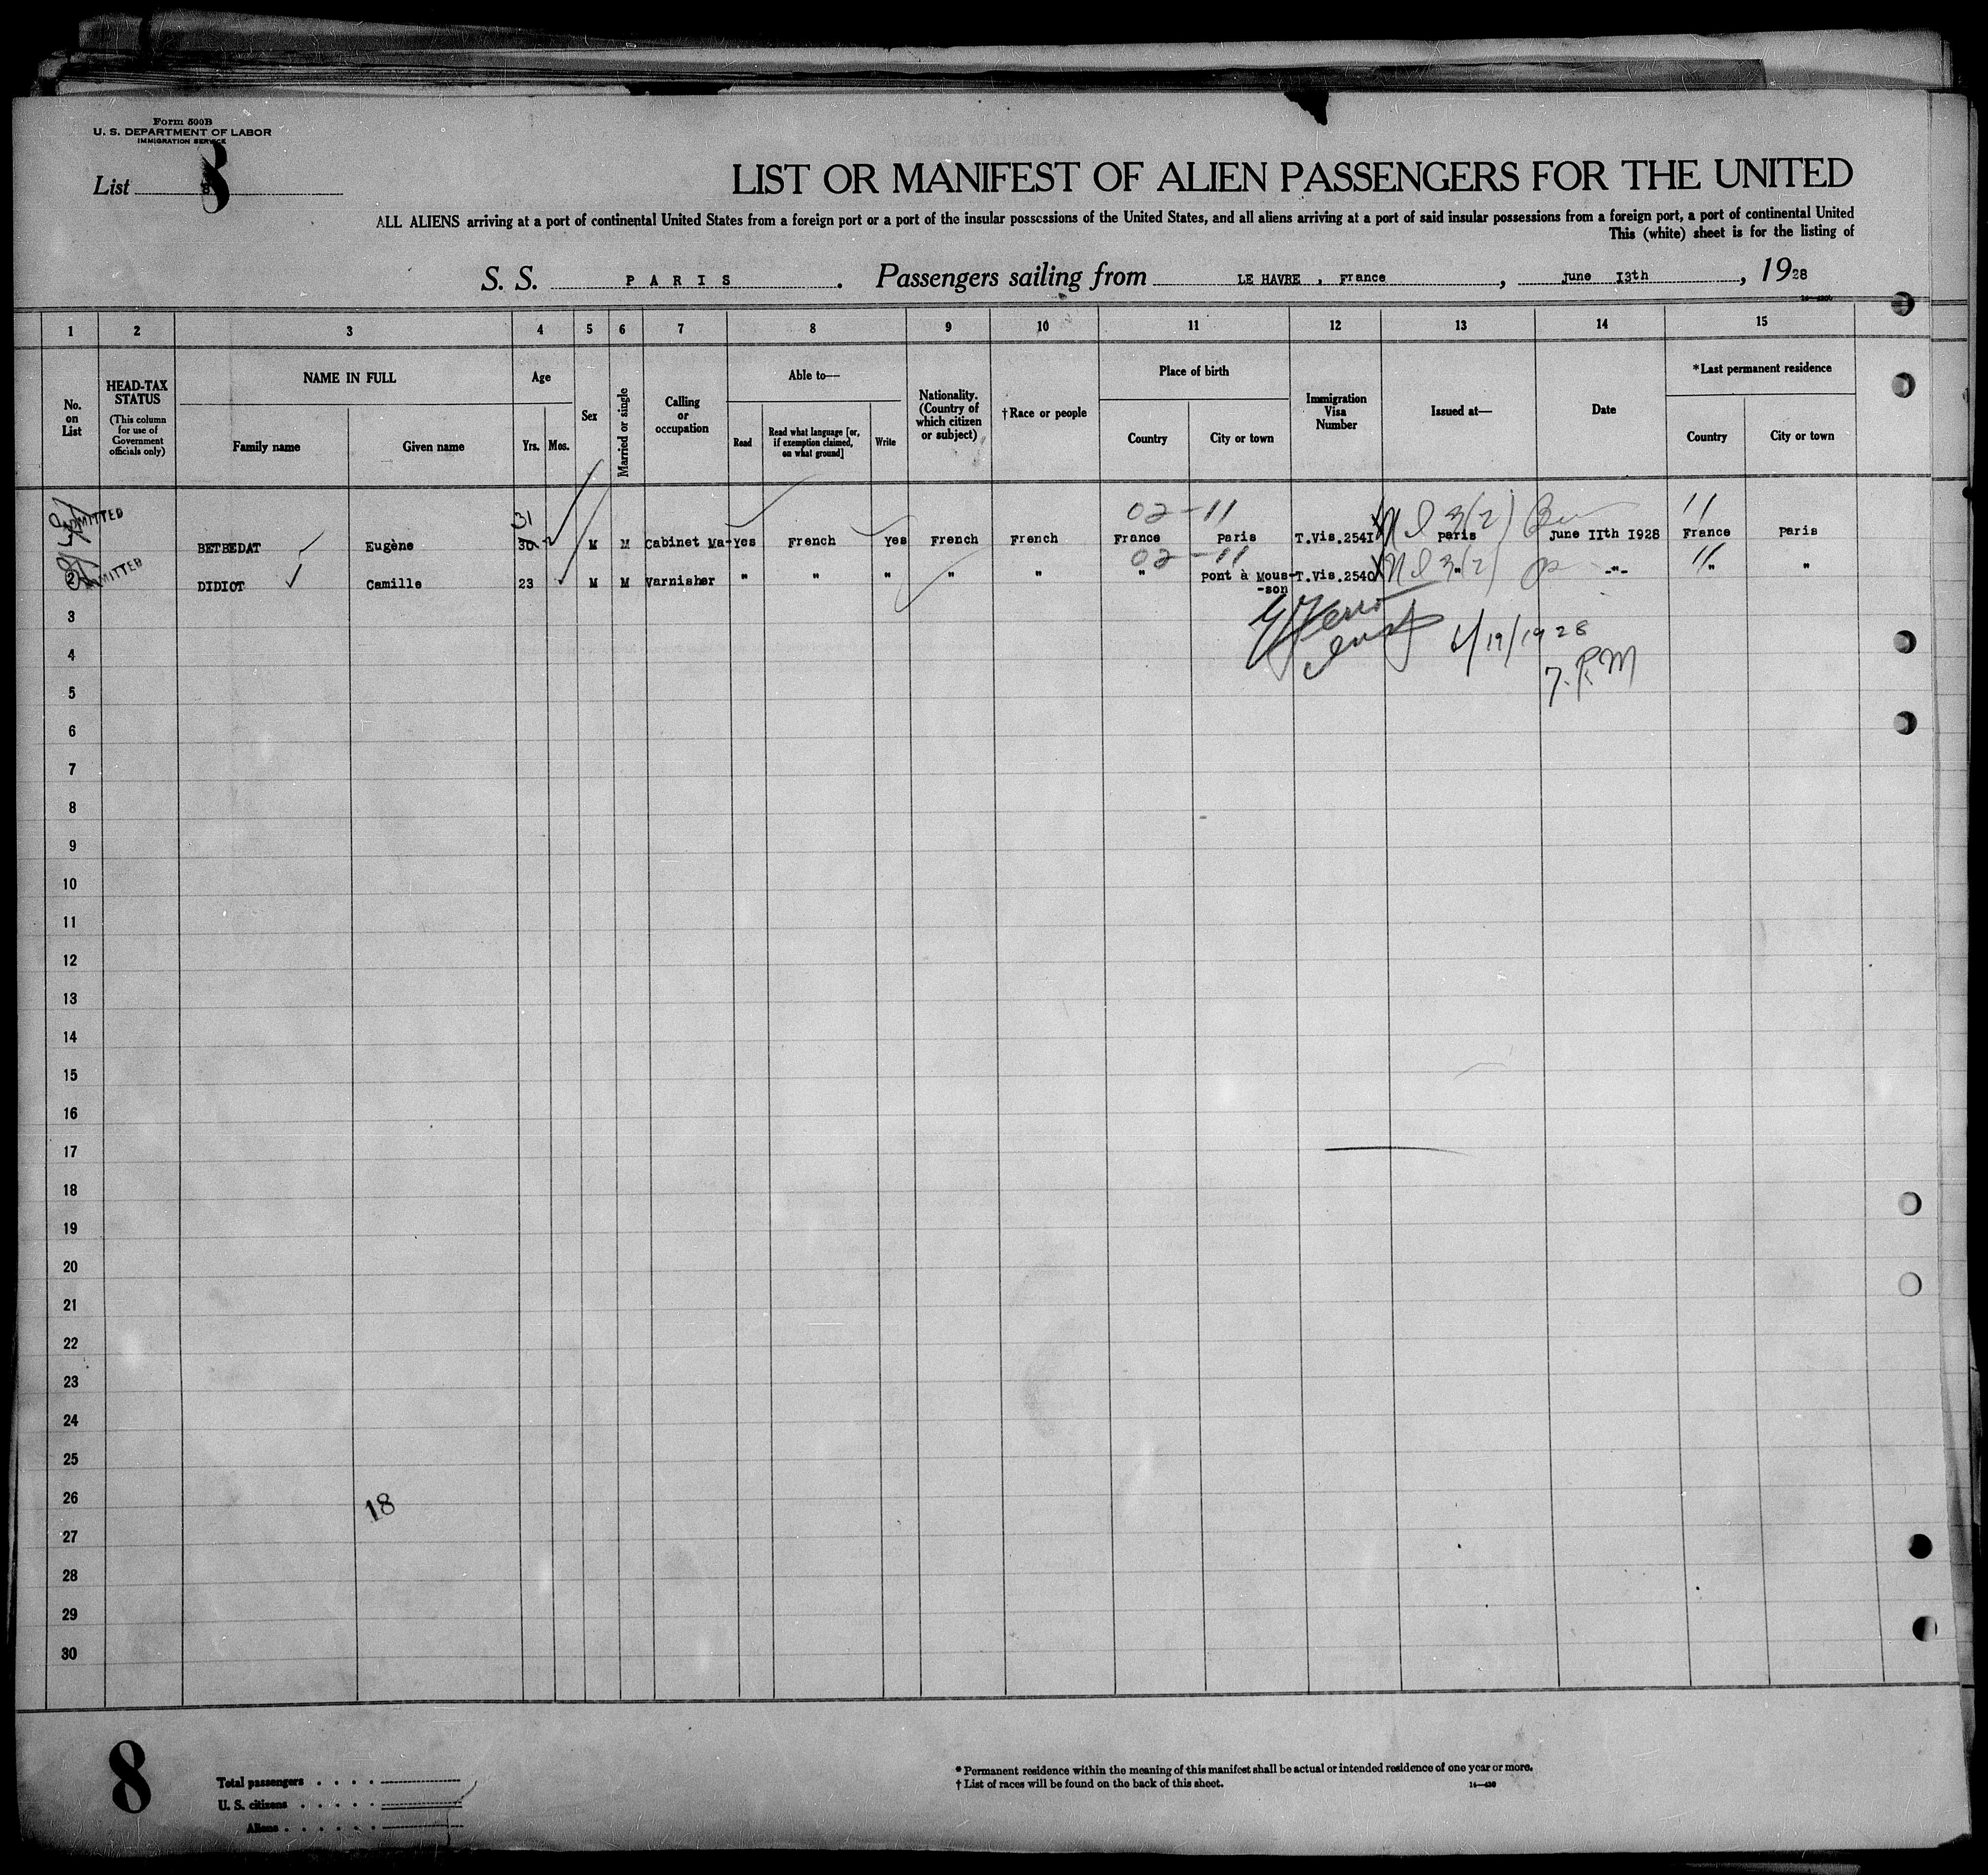 Form 500B
U. S. DEPARTMENT OF LABOR
IMMIGRATION SERVICE
List 8
LIST OR MANIFEST OF ALIEN PASSENGERS FOR THE UNITED
ALL ALIENS arriving at a port of continental United States from a foreign port or a port of the insular possessions of the United States, and all aliens arriving at a port of said insular possessions from a foreign port, a port of continental United
This (white) sheet is for the listing of
S. S. PARIS . Passengers sailing from LE HAVRE , France , June I3th , 1928
1 2 3 4 5 6 7 8 9 10 11 12 13 14 15
No. on List
HEAD-TAX STATUS (This column for use of Government officials only)
NAME IN FULL
Family name
Given name
Age
Yrs.
Mos.
Sex
Married or single
Calling or occupation
Able to—
Read
Read what language [or, if exemption claimed, on what ground]
Write
Nationality. (Country of which citizen or subject)
†Race or people
Place of birth
Country
City or town
Immigration Visa Number
Issued at—
Date
*Last permanent residence
Country
City or town
ADMITTED
31 02-11 3(2) 11
BETBEDAT Eugène 30 M M Cabinet Ma- Yes French Yes French French France Paris T.Vis.254I Paris June IIth I928 France Paris
ADMITTED
02-11 3(2) 11
2 DIDIOT Camille 23 M M Varnisher " " " " " " Pont à Mous- T.Vis.2540 " -"- " "
-son
3
6/19/1928
4
7. P.M
5
6
7
8
9
10
11
12
13
14
15
16
17
18
19
20
21
22
23
24
25
26
18
27
28
29
30
8
Total passengers
U. S. citizens
Aliens
* Permanent residence within the meaning of this manifest shall be actual or intended residence of one year or more.
† List of races will be found on the back of this sheet.